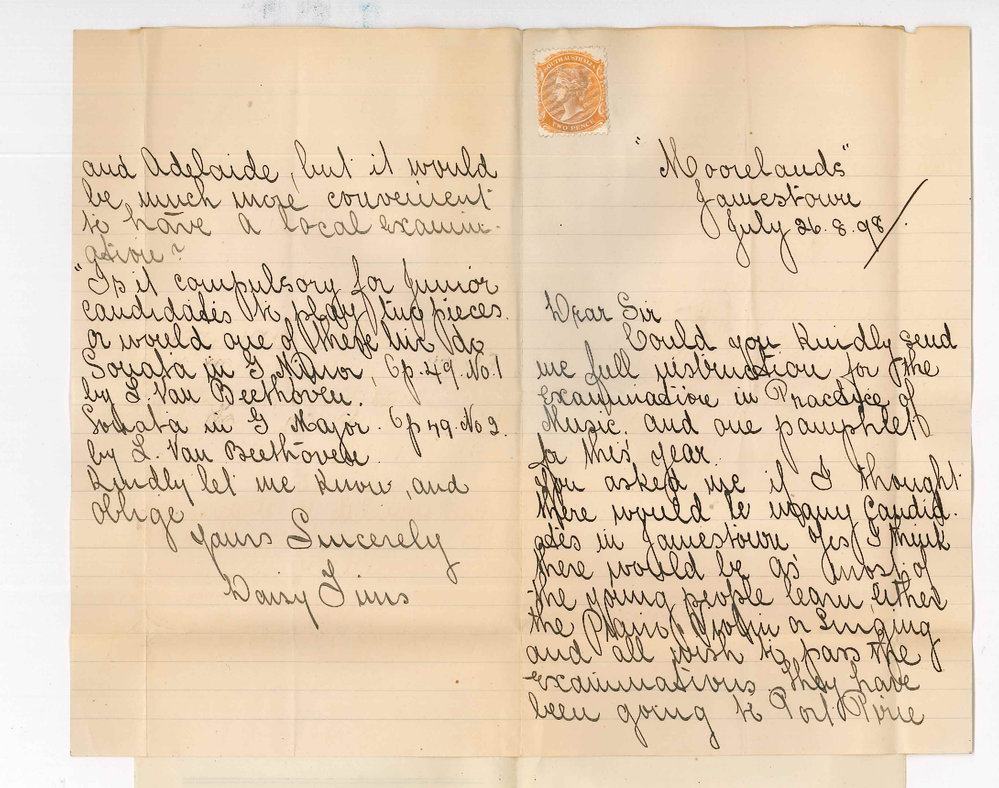 SOUTH AUSTRALIA
TWO PENCE
"Moorelands"
Jamestown
July 26. 8. 98
Dear Sir
Could you kindly send
me full instruction for the
Examination in Practice of
Music, and one pamphlet
for this year.
You asked me if I thought
there would be many Candid-
ates in Jamestown Yes I think
there would be as most of
the young people learn either
the Piano, Violin or Singing
and all wish to pass the
Examinations. They have
been going to Port Pirie
and Adelaide, but it would
be much more convenient
to have a local Examin-
ation?
"Is it compulsory for Junior
candidates to play two pieces.
or would one of these two do
Sonata in G Minor, Op. 49. No. 1
by L. Van Beethoven.
Sonata in G Major. Op 49. No 2.
by L. Van Beethoven.
Kindly let me know, and
oblige
Yours Sincerely
Daisy